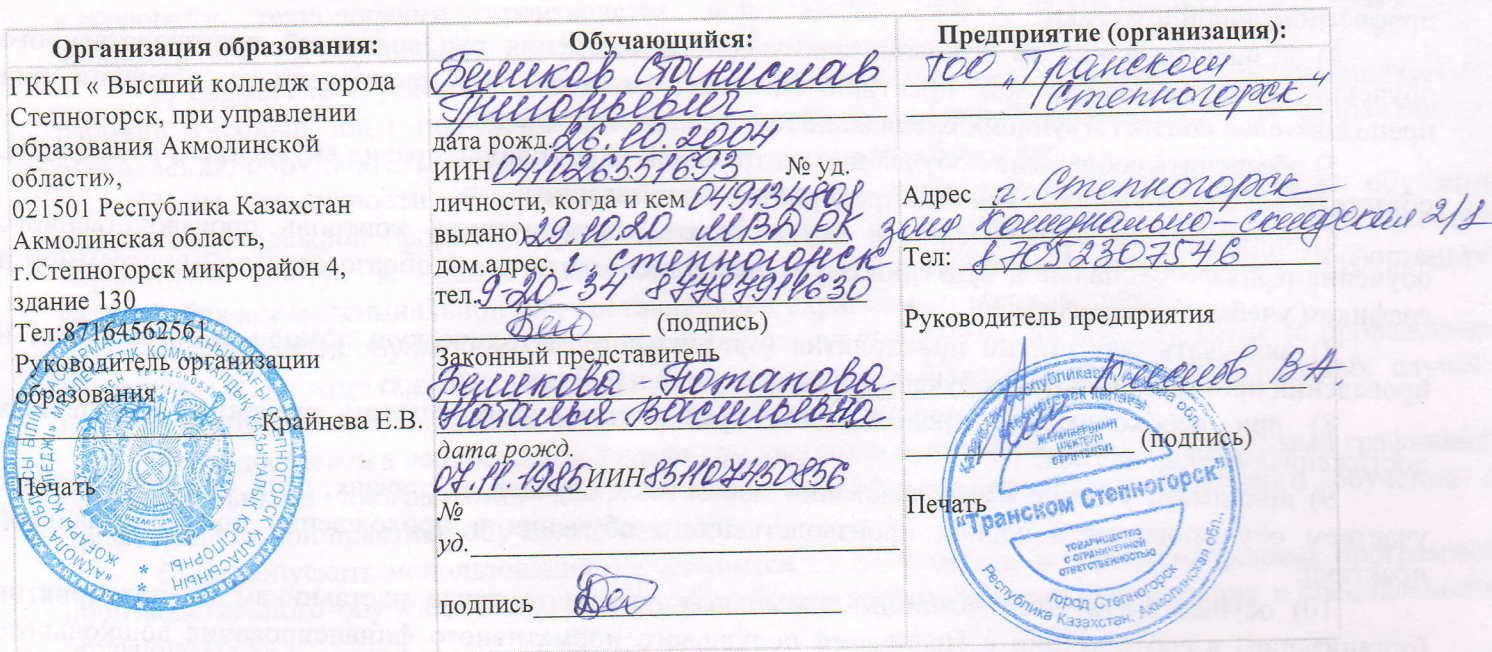 Организация образования:
ГККП « Высший колледж города
Степногорск, при управлении
образования Акмолинской
области»,
021501 Республика Казахстан
Акмолинская область,
г.Степногорск микрорайон 4,
здание 130
Тел:87164562561
Руководитель организации
образования
Крайнева Е.В.
Печать
Обучающийся:
Беликов Станислав
Григорьевич
дата рожд. 26.10.2004
ИИН 041026551693 № уд.
личности, когда и кем 049134808
выдано) 29.10.20 МВД РК
дом.адрес, г. Степногорск
тел. 9-20-34 87787911630
(подпись)
Законный представитель
Беликова Потапова
Наталья Васильевна
дата рожд.
07.11.1985 ИИН 851107450856
№
уд.
подпись
Предприятие (организация):
ТОО „Транском
Степногорск"
Адрес г. Степногорск
зона Коммунально-складская 2/8
Тел: 87052307546
Руководитель предприятия
В.А
(подпись)
Печать
"Транском Степногорск"
товарищество
с ограниченной
ответственностью
город Степногорск
Республика Казахстан, Акмолинская обл.